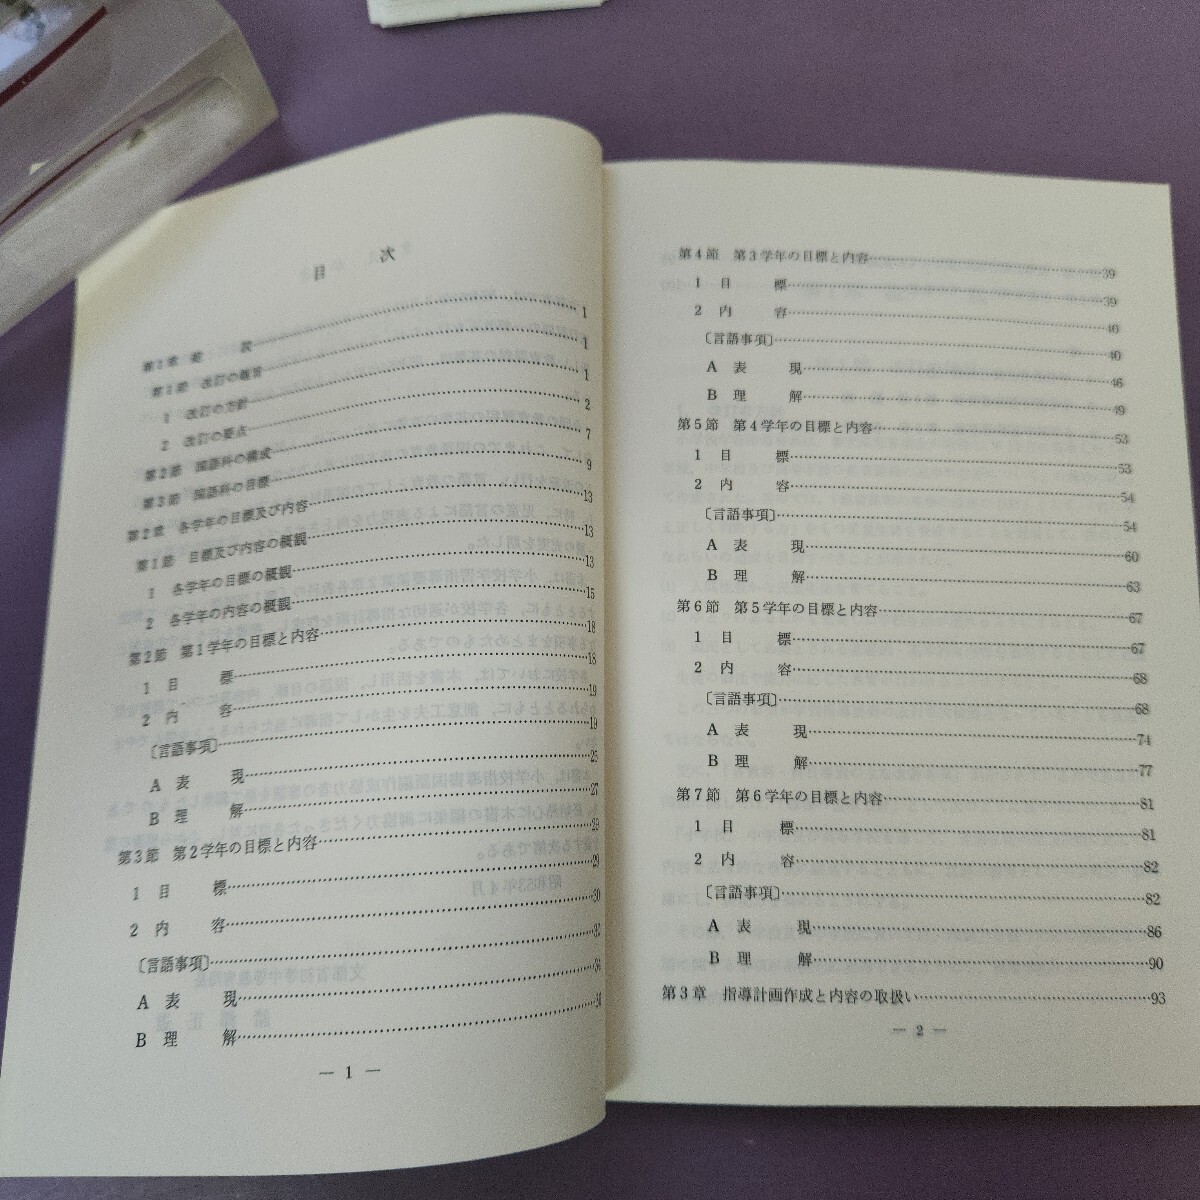 目　次
第1章　総　説 1
第1節　改訂の趣旨 1
1　改訂の方針 1
2　改訂の要点 2
第2節　国語科の構成 7
第3節　国語科の目標 9
第2章　各学年の目標及び内容 13
第1節　目標及び内容の概観 13
1　各学年の目標の概観 13
2　各学年の内容の概観 15
第2節　第1学年の目標と内容 18
1　目　標 18
2　内　容 19
〔言語事項〕 19
A　表　現 25
B　理　解 27
第3節　第2学年の目標と内容 29
1　目　標 29
2　内　容 30
〔言語事項〕
A　表　現
B　理　解
― 1 ―
第4節　第3学年の目標と内容 39
1　目　標 39
2　内　容 40
〔言語事項〕 40
A　表　現 46
B　理　解 49
第5節　第4学年の目標と内容 53
1　目　標 53
2　内　容 54
〔言語事項〕 54
A　表　現 60
B　理　解 63
第6節　第5学年の目標と内容 67
1　目　標 67
2　内　容 68
〔言語事項〕 68
A　表　現 74
B　理　解 77
第7節　第6学年の目標と内容 81
1　目　標 81
2　内　容 82
〔言語事項〕 82
A　表　現 86
B　理　解 90
第3章　指導計画作成と内容の取扱い 93
― 2 ―